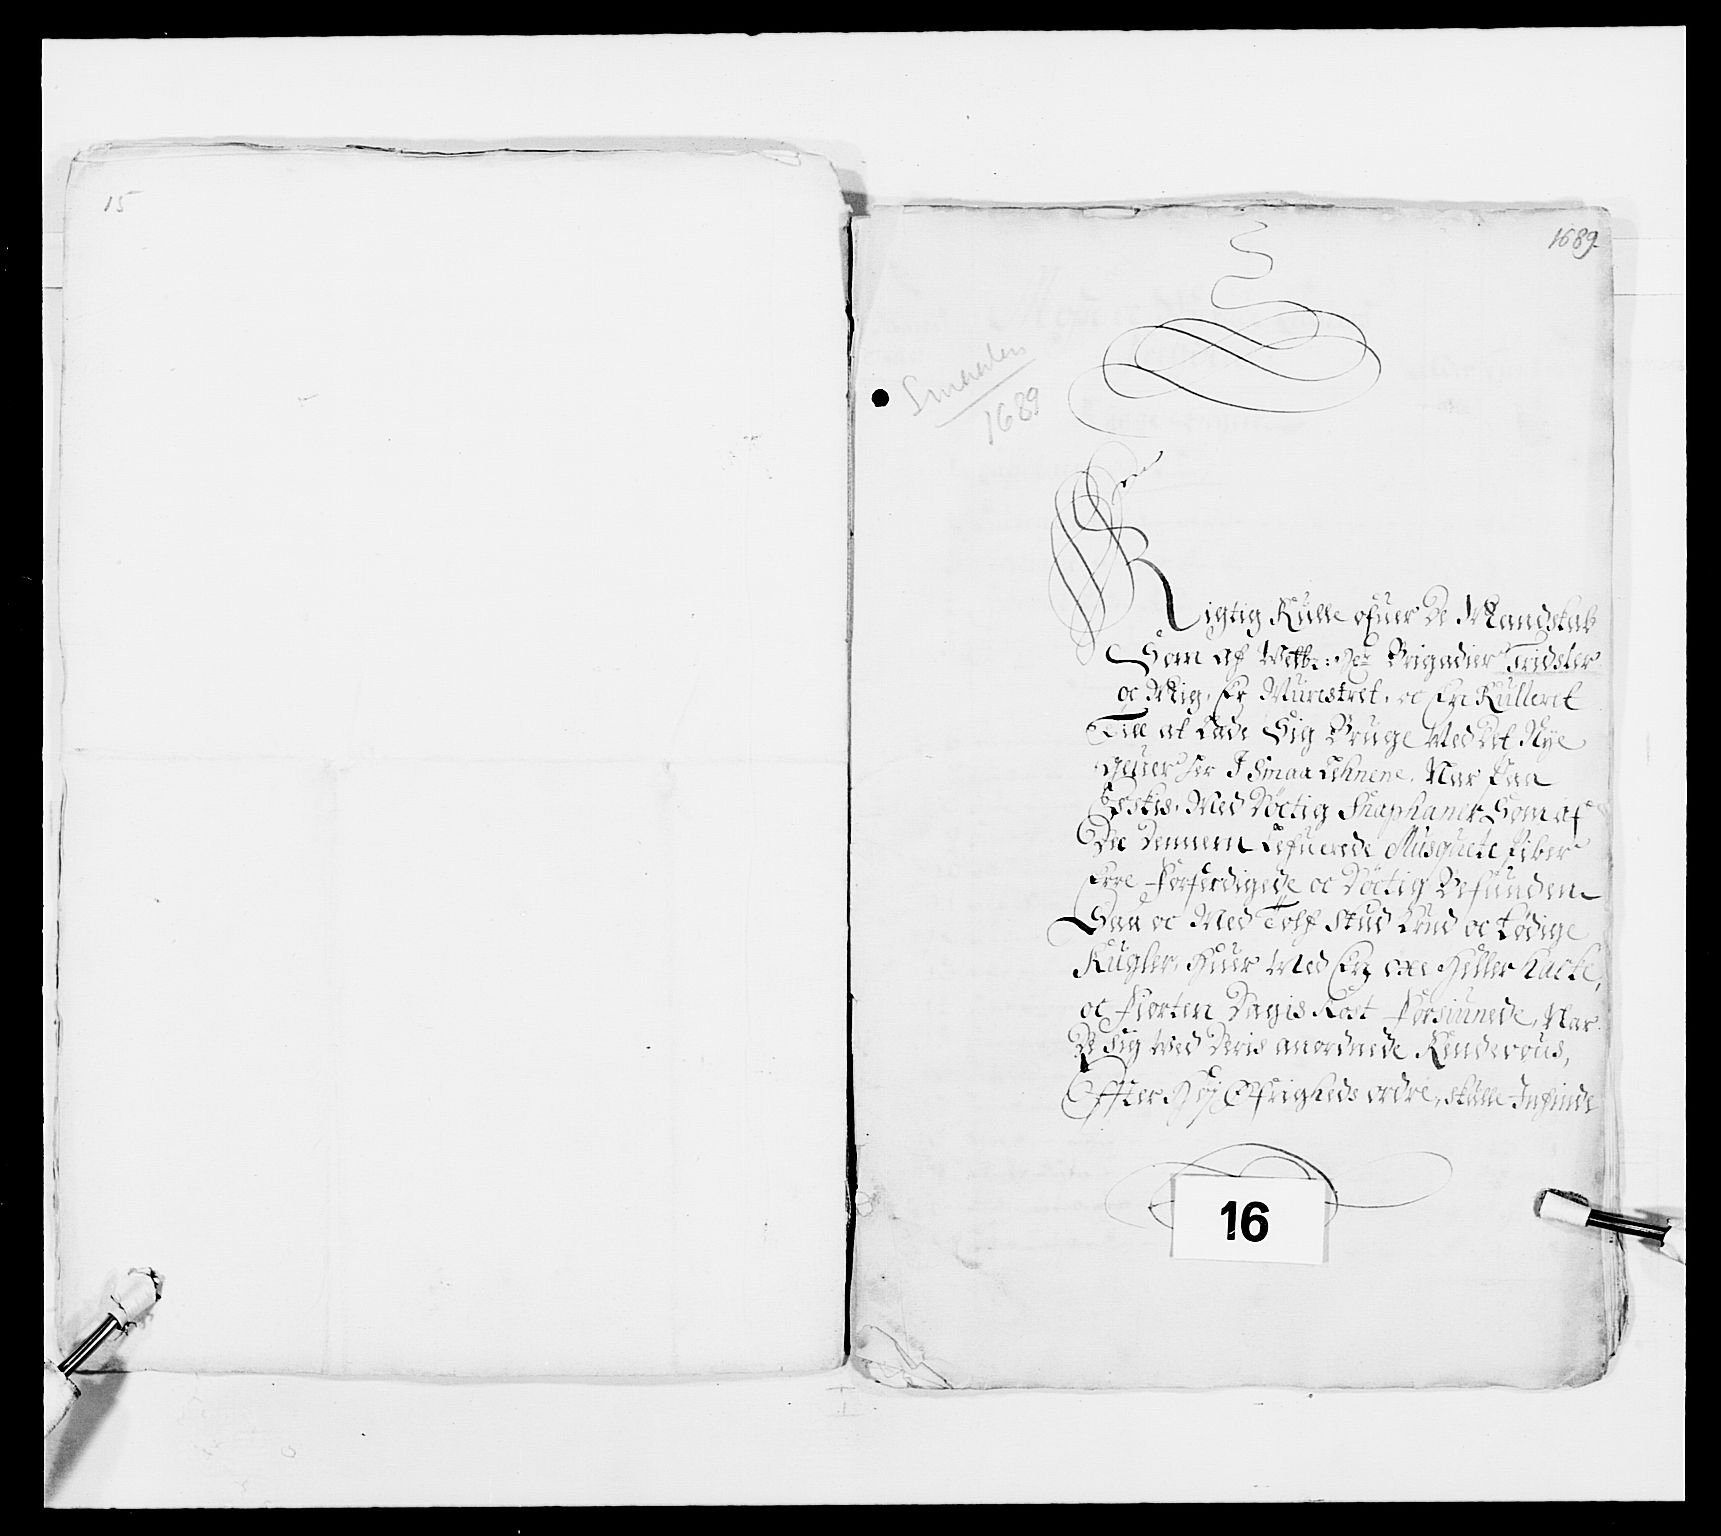 15
1689
Smaalen
1689
Rigtig Rulle ofuer De Mandskab
Som af Welb: Her Brigadier Tridsler
oc Mig, Er Münstret, oc Ere Rulleret
Till at Lade Sig Bruge Ved Det Nye
Geuer her I Smaa Lehnene, Nar Paa
Eskis, Med Döctig Snaphaner Som af
Dee Dennem Lefuerede Musquete Piber
Erre Forferdigede oc Döctig Befunden
Saa oc Med Tolf Skud Krud oc Lödige
Kugler, Huer Med En öxe Heller Hacke,
oc Fiorten Dagis Kost Forsiunede, Nar
De Sig Ved Deris anordnede Rendevous,
Effter Höj Öfrigheds ordre, skulle Infinde
16